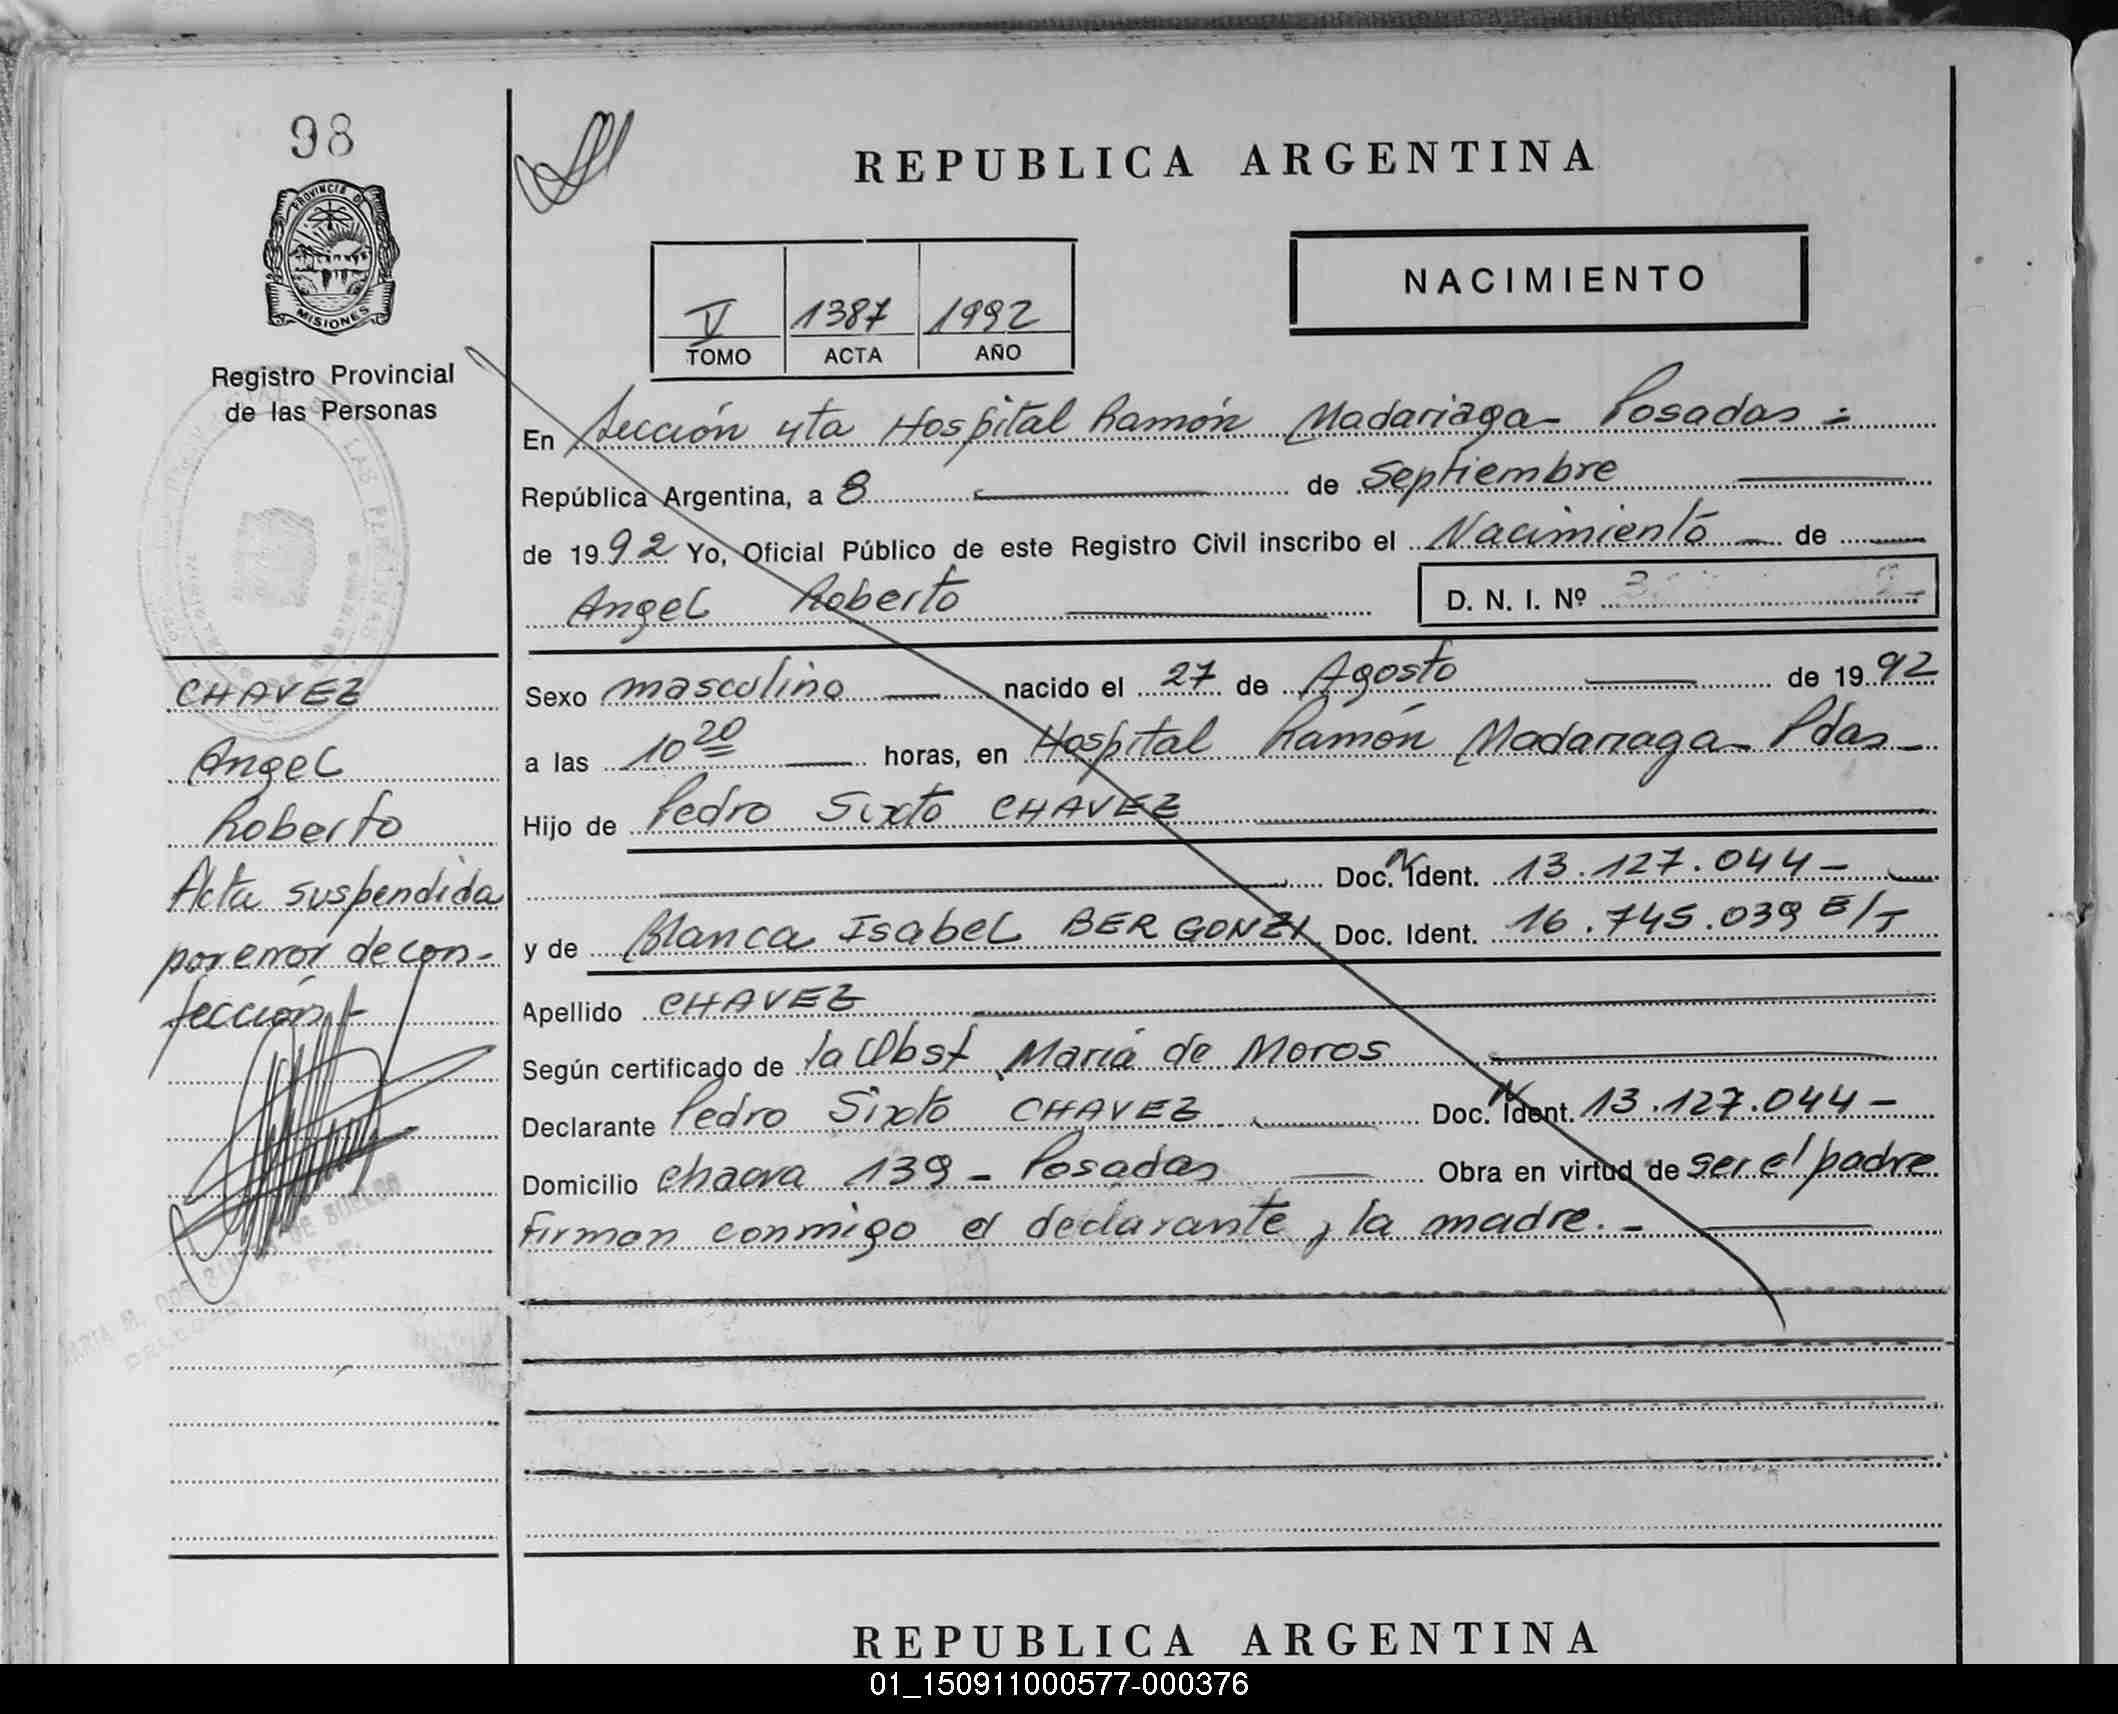 98
PROVINCIA DE
MISIONES
Registro Provincial
de las Personas
CHAVEZ
Angel
Roberto
Acta suspendida
por error de con-
fección -
REPUBLICA ARGENTINA
V 1387 1992
TOMO ACTA AÑO
NACIMIENTO
En Sección 4ta Hospital Ramón Madariaga - Posadas -
República Argentina, a 8 de Septiembre
de 1992 Yo, Oficial Público de este Registro Civil inscribo el Nacimiento de
Angel Roberto
D. N. I. Nº
Sexo masculino nacido el 27 de Agosto de 1992
a las 10 20 horas, en Hospital Ramón Madariaga - Pdas -
Hijo de Pedro Sixto CHAVEZ
Doc. N Ident. 13.127.044 -
y de Blanca Isabel BERGONZI Doc. Ident. 16.745.039 E/T
Apellido CHAVEZ
Según certificado de la Obst. María de Moros
Declarante Pedro Sixto CHAVEZ Doc. N Ident. 13.127.044 -
Domicilio 139 - Posadas Obra en virtud de ser el padre
firman conmigo el declarante y la madre. -
REPUBLICA ARGENTINA
01_150911000577-000376